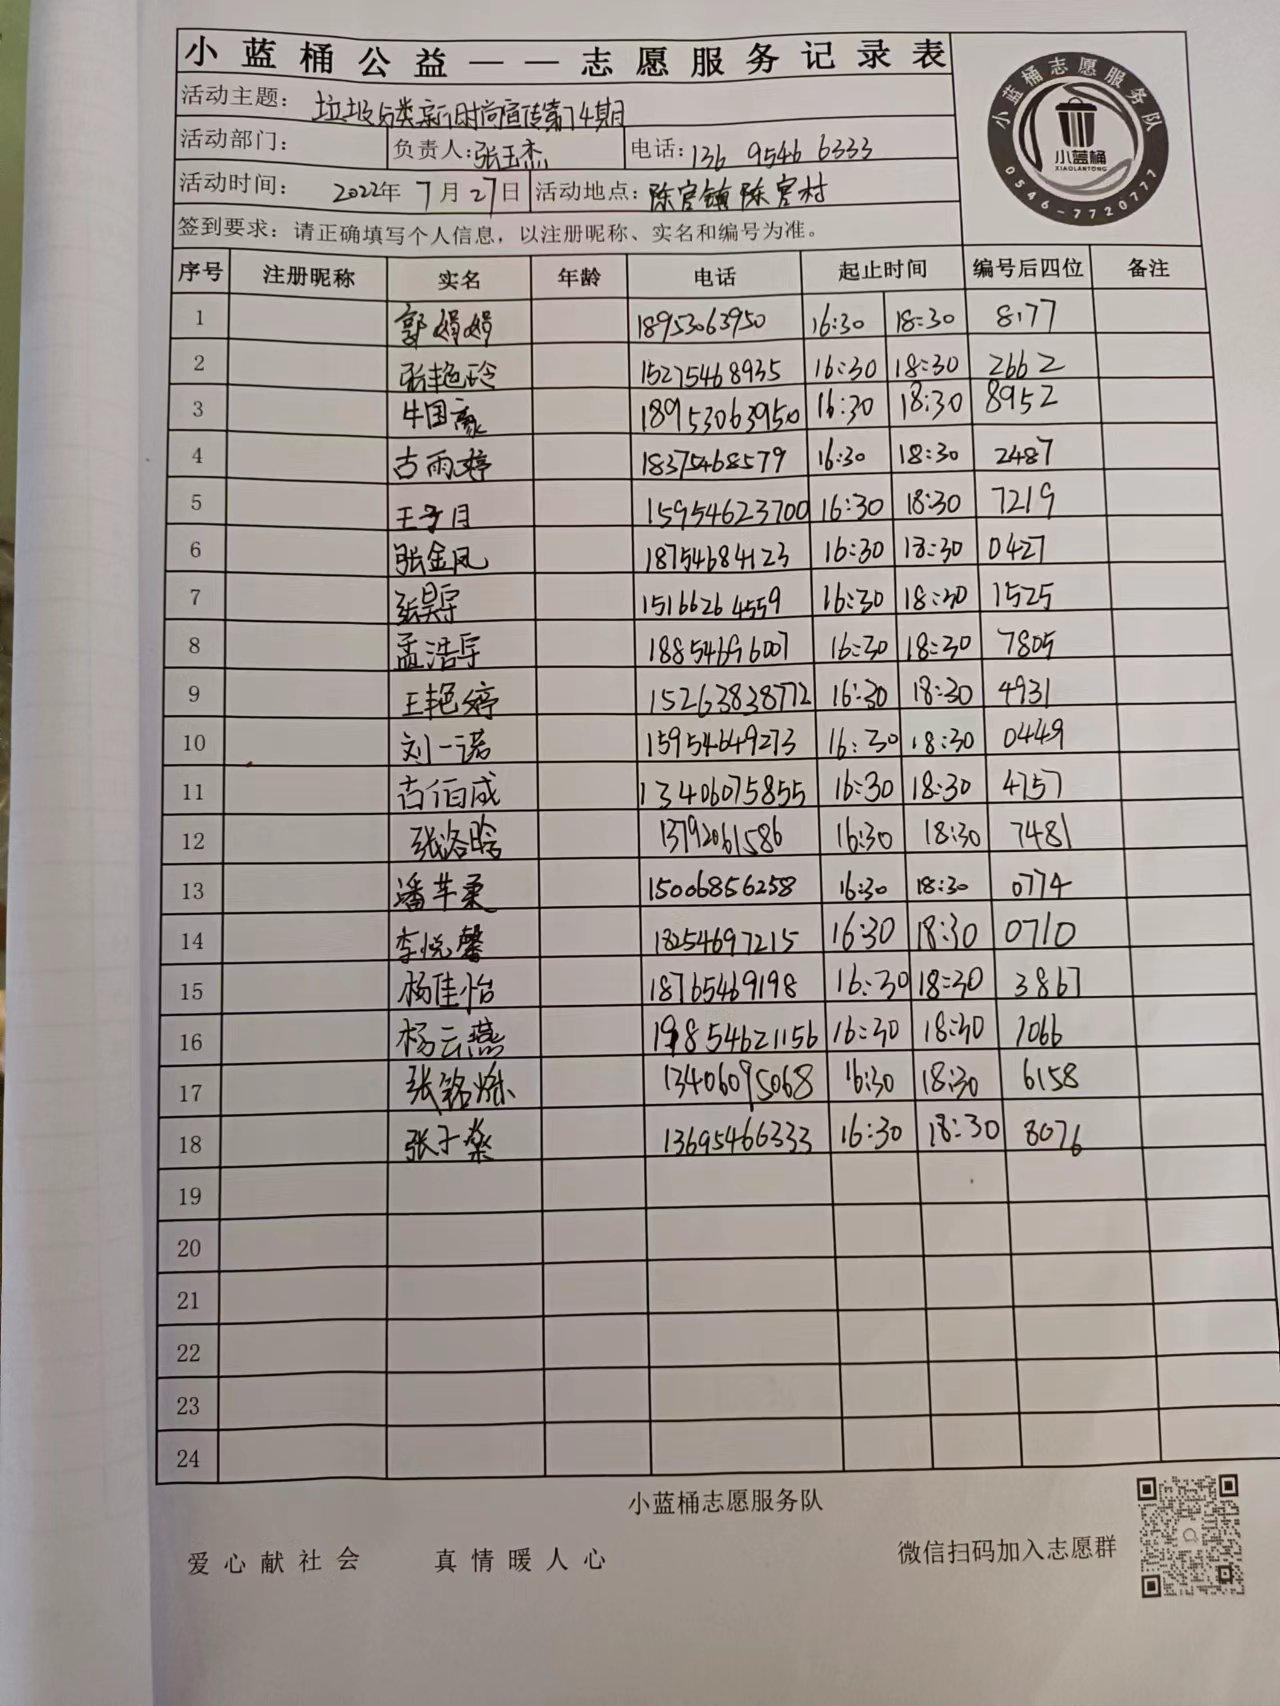 小蓝桶公益——志愿服务记录表
小蓝桶志愿服务队
小蓝桶
XIAOLANTONG
0546-7720777
活动主题: 垃圾分类新时尚宣传第74期
活动部门: 负责人:张玉杰 电话:136 9546 6333
活动时间: 2022年 7月27日 活动地点: 陈官镇陈官村
签到要求: 请正确填写个人信息，以注册昵称、实名和编号为准。
序号 注册昵称 实名 年龄 电话 起止时间 编号后四位 备注
1 郭娟娟 18953063950 16:30 18:30 8177
2 张艳玲 15275468935 16:30 18:30 2662
3 牛国豪 18953063950 16:30 18:30 8952
4 古雨婷 18375468579 16:30 18:30 2487
5 王子月 15954623700 16:30 18:30 7219
6 张金凤 18754684123 16:30 18:30 0427
7 张昊宇 15166264559 16:30 18:30 1525
8 孟浩宇 18854696007 16:30 18:30 7805
9 王艳婷 15263838772 16:30 18:30 4931
10 刘一诺 15954649273 16:30 18:30 0449
11 古佰成 13406075855 16:30 18:30 4757
12 张洛晗 13792061586 16:30 18:30 7481
13 潘芊柔 15006856258 16:30 18:30 0774
14 李悦馨 18254697215 16:30 18:30 0710
15 杨佳怡 18765469198 16:30 18:30 3867
16 杨云燕 16:30 18:30 7066
17 张铭烁 13406095068 16:30 18:30 6158
18 张子燊 13695466333 16:30 18:30 8076
19
20
21
22
23
24
小蓝桶志愿服务队
爱心献社会 真情暖人心 微信扫码加入志愿群